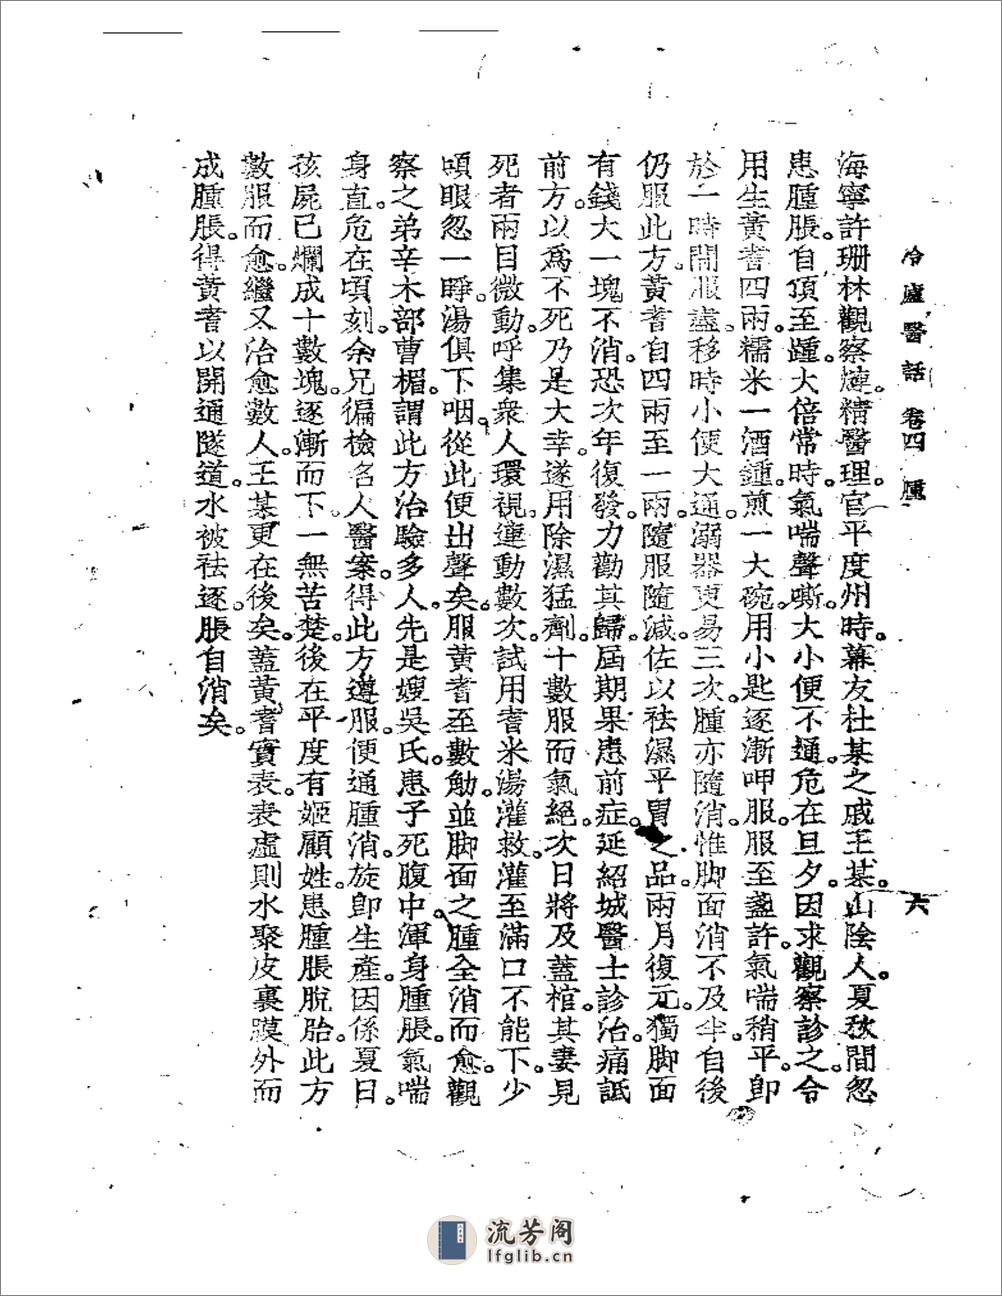 冷廬醫話 卷四 腫 六
海寧許珊林觀察槤。精醫理。官平度州時。幕友杜某之戚王某。山陰人。夏秋間忽
患腫脹。自頂至踵。大倍常時。氣喘聲嘶。大小便不通。危在旦夕。因求觀察診之。令
用生黃耆四兩。糯米一酒鍾。煎一大碗。用小匙逐漸呷服。服至盞許。氣喘稍平。即
於一時間服盡。移時小便大通。溺器更易三次。腫亦隨消。惟脚面消不及半。自後
仍服此方。黃耆自四兩至一兩。隨服隨減。佐以祛濕平胃之品。兩月復元。獨脚面
有錢大一塊不消。恐次年復發。力勸其歸。屆期果患前症。延紹城醫士診治。痛詆
前方。以爲不死乃是大幸。遂用除濕猛劑。十數服而氣絕。次日將及蓋棺。其妻見
死者兩目微動。呼集衆人環視。連動數次。試用耆米湯灌救。灌至滿口不能下。少
頃眼忽一睜。湯俱下咽。從此便出聲矣。服黃耆至數觔。並脚面之腫全消而愈。觀
察之弟辛木部曹楣。謂此方治驗多人。先是嫂吳氏。患子死腹中。渾身腫脹。氣喘
身直。危在頃刻。余兄徧檢名人醫案。得此方遵服。便通腫消。旋即生產。因係夏日。
孩屍已爛成十數塊。逐漸而下。一無苦楚。後在平度有姬顧姓。患腫脹脫胎。此方
數服而愈。繼又治愈數人。王某更在後矣。蓋黃耆實表。表虛則水聚皮裏膜外而
成腫脹。得黃耆以開通隧道。水被祛逐。脹自消矣。
流芳阁
lfglib.cn